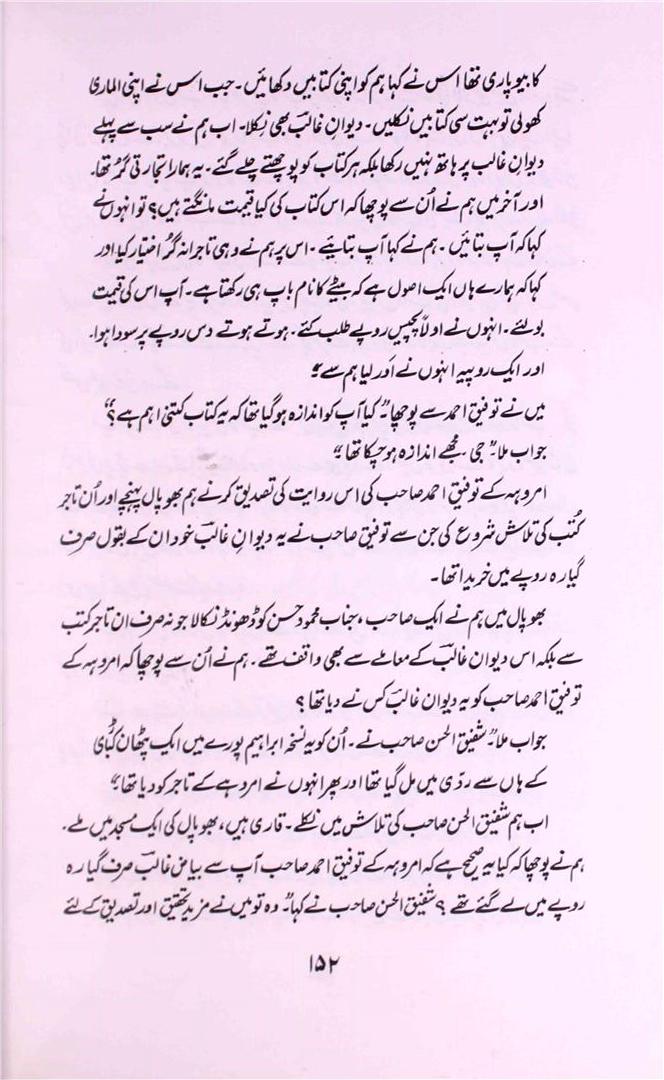 کا بیوپاری تھا اس نے کہا ہم کو اپنی کتابیں دکھائیں۔ جب اس نے اپنی الماری
کھولی تو بہت سی کتابیں نکلیں۔ دیوانِ غالبؔ بھی نکلا۔ اب ہم نے سب سے پہلے
دیوانِ غالب پر ہاتھ نہیں رکھا بلکہ ہر کتاب کو پوچھتے چلے گئے۔ یہ ہمارا تجارتی گُر تھا۔
اور آخر میں ہم نے اُن سے پوچھا کہ اس کتاب کی کیا قیمت مانگتے ہیں؟ تو انہوں نے
کہا کہ آپ بتائیں۔ ہم نے کہا آپ بتائیے۔ اس پر ہم نے وہی تاجرانہ گُر اختیار کیا اور
کہا کہ ہمارے ہاں ایک اصول ہے کہ بیٹے کا نام باپ ہی رکھتا ہے۔ آپ اس کی قیمت
بولئے۔ انہوں نے اولاً پچیس روپے طلب کئے۔ ہوتے ہوتے دس روپے پر سودا ہوا۔
اور ایک روپیہ انہوں نے اَور لیا ہم سے“
میں نے توفیق احمد سے پوچھا۔”کیا آپ کو اندازہ ہو گیا تھا کہ یہ کتاب کتنی اہم ہے؟“
جواب ملا۔”جی مجھے اندازہ ہو چکا تھا۔“
امروہہ کے توفیق احمد صاحب کی اس روایت کی تصدیق کرنے ہم بھوپال پہنچے اور اُن تاجر
کُتب کی تلاش شروع کی جن سے توفیق صاحب نے یہ دیوانِ غالبؔ خود ان کے بقول صرف
گیارہ روپے میں خریدا تھا۔
بھوپال میں ہم نے ایک صاحب، جناب محمود حسن کو ڈھونڈ نکالا جو نہ صرف ان تاجر کتب
سے بلکہ اس دیوانِ غالبؔ کے معاملے سے بھی واقف تھے۔ ہم نے اُن سے پوچھا کہ امروہہ کے
توفیق احمد صاحب کو یہ دیوان غالبؔ کس نے دیا تھا؟
جواب ملا۔”شفیق الحسن صاحب نے۔ اُن کو یہ نسخہ ابراہیم پورے میں ایک پٹھان کباڑی
کے ہاں سے ردّی میں مل گیا تھا اور پھر انہوں نے امروہے کے تاجر کو دیا تھا۔“
اب ہم شفیق الحسن صاحب کی تلاش میں نکلے۔ قاری ہیں، بھوپال کی ایک مسجد میں ملے۔
ہم نے پوچھا کہ کیا یہ صحیح ہے کہ امروہہ کے توفیق احمد صاحب آپ سے بیاضِ غالبؔ صرف گیارہ
روپے میں لے گئے تھے؟ شفیق الحسن صاحب نے کہا۔”وہ تو میں نے مزید تحقیق اور تصدیق کے لئے
۱۵۲